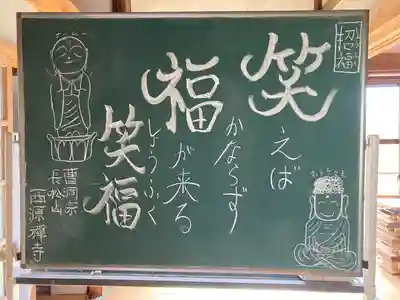 招福
笑えば
かならず
福が来る
しょうふく
笑福
曹洞宗
長松山
西源禅寺